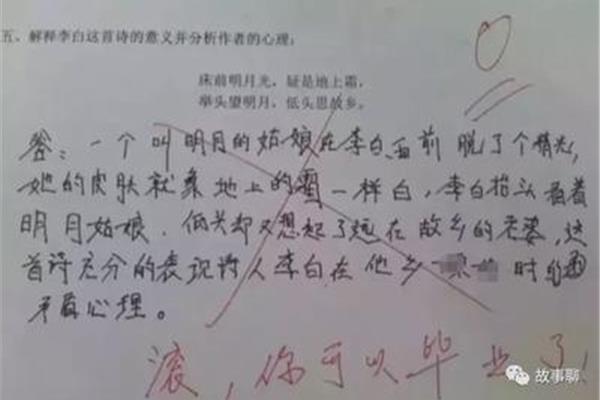 五、解释李白这首诗的意义并分析作者的心理：
0
床前明月光，疑是地上霜，
举头望明月，低头思故乡。
答：一个叫明月的姑娘在李白面前脱了个精光，
她的皮肤就象地上的霜一样白，李白抬头看着
明月姑娘．低头却又想起了远在故乡的老婆，这
首诗充分的表现诗人李白在他乡 时的
矛盾心理。
滚，你可以毕业了，
故事聊